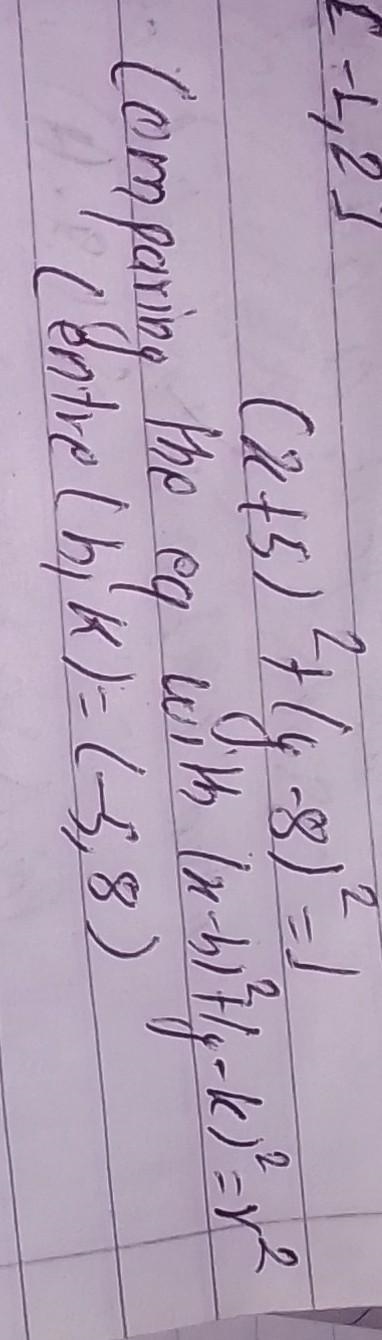 (x+5)²+(y-8)²=1
Comparing the eq with (x-h)²+(y-k)²=r²
Centre (h,k)=(-5,8)